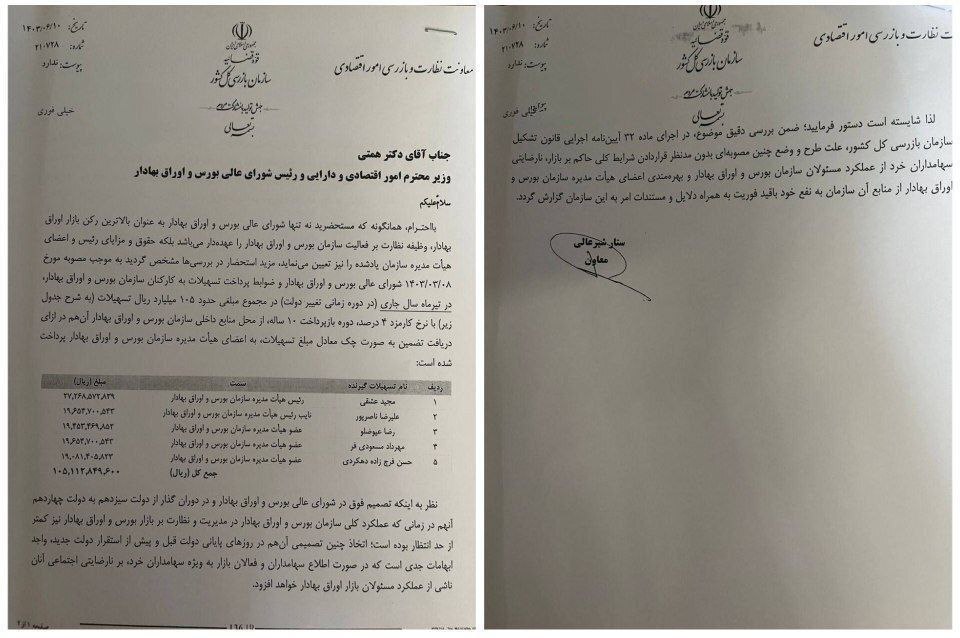 تاریخ: ۱۴۰۳/۰۶/۱۰
شماره: ۲۱۰۷۲۸
پیوست: ندارد
خیلی فوری
جمهوری اسلامی ایران
قوه قضاییه
سازمان بازرسی کل کشور
معاونت نظارت و بازرسی امور اقتصادی
بسمه تعالی
جناب آقای دکتر همتی
وزیر محترم امور اقتصادی و دارایی و رئیس شورای عالی بورس و اوراق بهادار
سلام‌علیکم
بااحترام، همانگونه که مستحضرید نه تنها شورای عالی بورس و اوراق بهادار به عنوان بالاترین رکن بازار اوراق
بهادار، وظیفه نظارت بر فعالیت سازمان بورس و اوراق بهادار را عهده‌دار می‌باشد بلکه حقوق و مزایای رئیس و اعضای
هیأت مدیره سازمان یادشده را نیز تعیین می‌نماید، مزید استحضار در بررسی‌ها مشخص گردید به موجب مصوبه مورخ
۱۴۰۳/۰۳/۰۸ شورای عالی بورس و اوراق بهادار و ضوابط پرداخت تسهیلات به کارکنان سازمان بورس و اوراق بهادار،
در تیرماه سال جاری (در دوره زمانی تغییر دولت) در مجموع مبلغی حدود ۱۰۵ میلیارد ریال تسهیلات (به شرح جدول
زیر) با نرخ کارمزد ۴ درصد، دوره بازپرداخت ۱۰ ساله، از محل منابع داخلی سازمان بورس و اوراق بهادار آن‌هم در ازای
دریافت تضمین به صورت چک معادل مبلغ تسهیلات، به اعضای هیأت مدیره سازمان بورس و اوراق بهادار پرداخت
شده است:
ردیف نام تسهیلات گیرنده سمت مبلغ (ریال)
۱ مجید عشقی رئیس هیأت مدیره سازمان بورس و اوراق بهادار ۲۷,۲۶۸,۵۷۲,۸۳۹
۲ علیرضا ناصرپور نایب رئیس هیأت مدیره سازمان بورس و اوراق بهادار ۱۹,۶۵۳,۷۰۰,۵۴۳
۳ رضا عیوضلو عضو هیأت مدیره سازمان بورس و اوراق بهادار ۱۹,۴۵۳,۴۶۹,۸۵۲
۴ مهرداد مسعودی فر عضو هیأت مدیره سازمان بورس و اوراق بهادار ۱۹,۶۵۳,۷۰۰,۵۴۳
۵ حسن فرج زاده دهکردی عضو هیأت مدیره سازمان بورس و اوراق بهادار ۱۹,۰۸۱,۴۰۵,۸۲۳
جمع کل (ریال) ۱۰۵,۱۱۲,۸۴۹,۶۰۰
نظر به اینکه تصمیم فوق در شورای عالی بورس و اوراق بهادار و در دوران گذار از دولت سیزدهم به دولت چهاردهم
آنهم در زمانی که عملکرد کلی سازمان بورس و اوراق بهادار در مدیریت و نظارت بر بازار بورس و اوراق بهادار نیز کمتر
از حد انتظار بوده است؛ اتخاذ چنین تصمیمی آن‌هم در روزهای پایانی دولت قبل و پیش از استقرار دولت جدید، واجد
ابهامات جدی است که در صورت اطلاع سهامداران و فعالان بازار به ویژه سهامداران خرد، بر نارضایتی اجتماعی آنان
ناشی از عملکرد مسئولان بازار اوراق بهادار خواهد افزود.
صفحه ۱ از ۲
تاریخ: ۱۴۰۳/۰۶/۱۰
شماره: ۲۱۰۷۲۸
پیوست: ندارد
خیلی فوری
جمهوری اسلامی ایران
قوه قضاییه
سازمان بازرسی کل کشور
نظارت و بازرسی امور اقتصادی
بسمه تعالی
لذا شایسته است دستور فرمایید؛ ضمن بررسی دقیق موضوع، در اجرای ماده ۳۲ آیین‌نامه اجرایی قانون تشکیل
سازمان بازرسی کل کشور، علت طرح و وضع چنین مصوبه‌ای بدون مدنظر قراردادن شرایط کلی حاکم بر بازار، نارضایتی
سهامداران خرد از عملکرد مسئولان سازمان بورس و اوراق بهادار و بهره‌مندی اعضای هیأت مدیره سازمان بورس و
اوراق بهادار از منابع آن سازمان به نفع خود باقید فوریت به همراه دلایل و مستندات امر به این سازمان گزارش گردد.
ستار شیرعالی
معاون